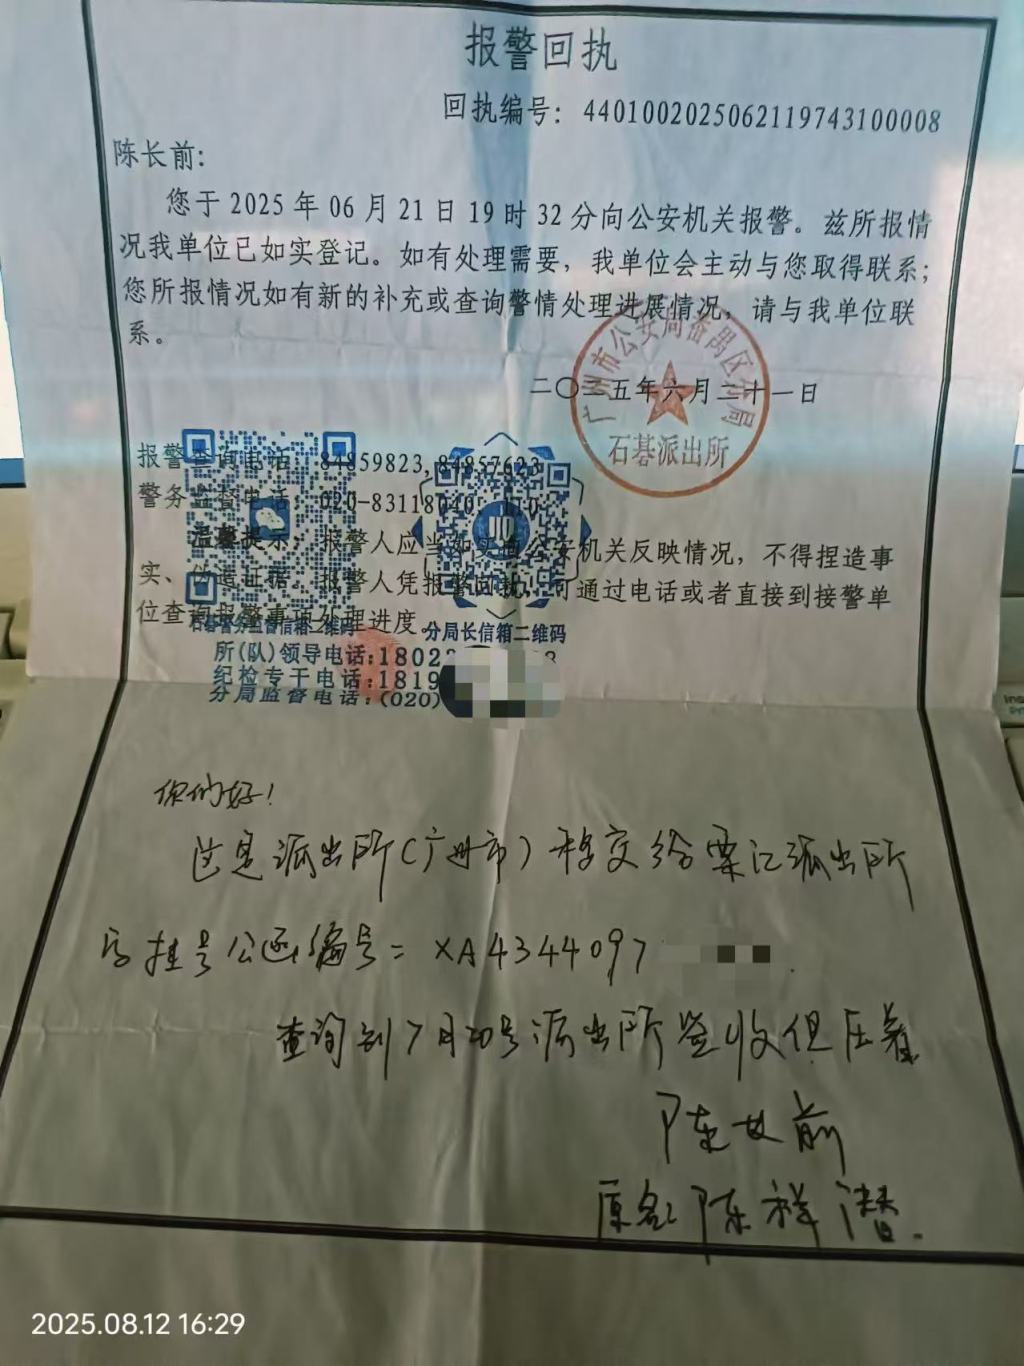 报警回执
回执编号：4401002025062119743100008
陈长前：
您于2025年06月21日19时32分向公安机关报警。兹所报情
况我单位已如实登记。如有处理需要，我单位会主动与您取得联系；
您所报情况如有新的补充或查询警情处理进展情况，请与我单位联
系。
广州市公安局番禺区分局
二〇二五年六月二十一日
石碁派出所
报警查询电话：84859823,84857623
警务监督电话：020-83118040、110
温馨提示：报警人应当如实向公安机关反映情况，不得捏造事
实、伪造证据。报警人凭报警回执，可通过电话或者直接到接警单
位查询报警事项处理进度。
石碁警务监督信箱二维码
分局长信箱二维码
所(队)领导电话:1802
纪检专干电话:1819
分局监督电话:(020)
你们好！
这是派出所（广州市）移交给栗江派出所
的挂号公函编号=XA4344097
查询到7月20号派出所签收但压着
陈长前
原名陈祥潜.
2025.08.12 16:29